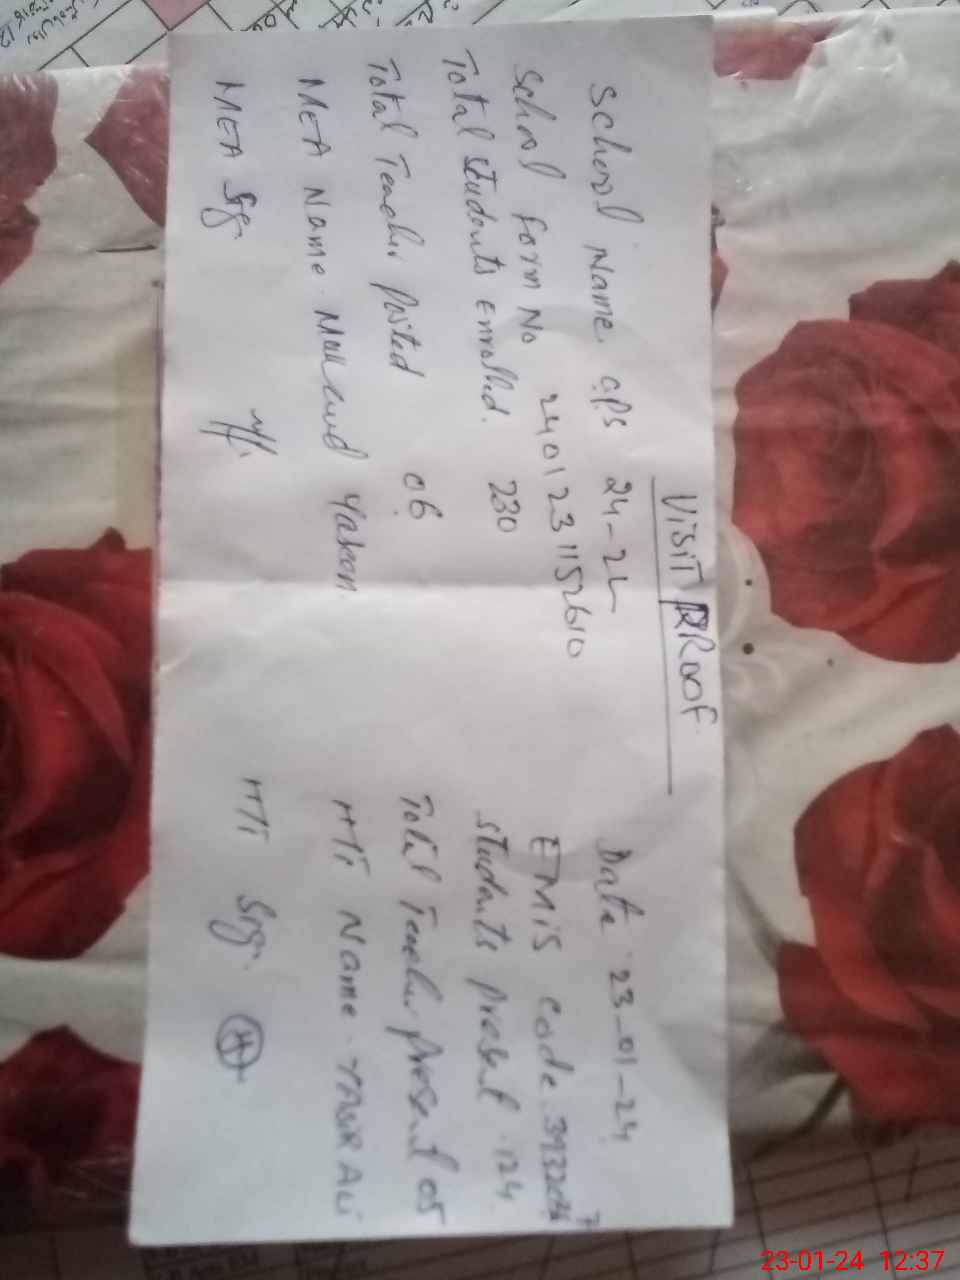 VISIT PROOF
School Name GPS 24-2L Date 23-01-24
School form No 2401231152610 EMIS code
Total students enrolled. 230 students present 124
Total Teacher Posted 06 Total Teacher present 05
MEA Name Yaseen HTi Name - ALi
MEA Sig. HTi Sig.
23-01-24 12:37